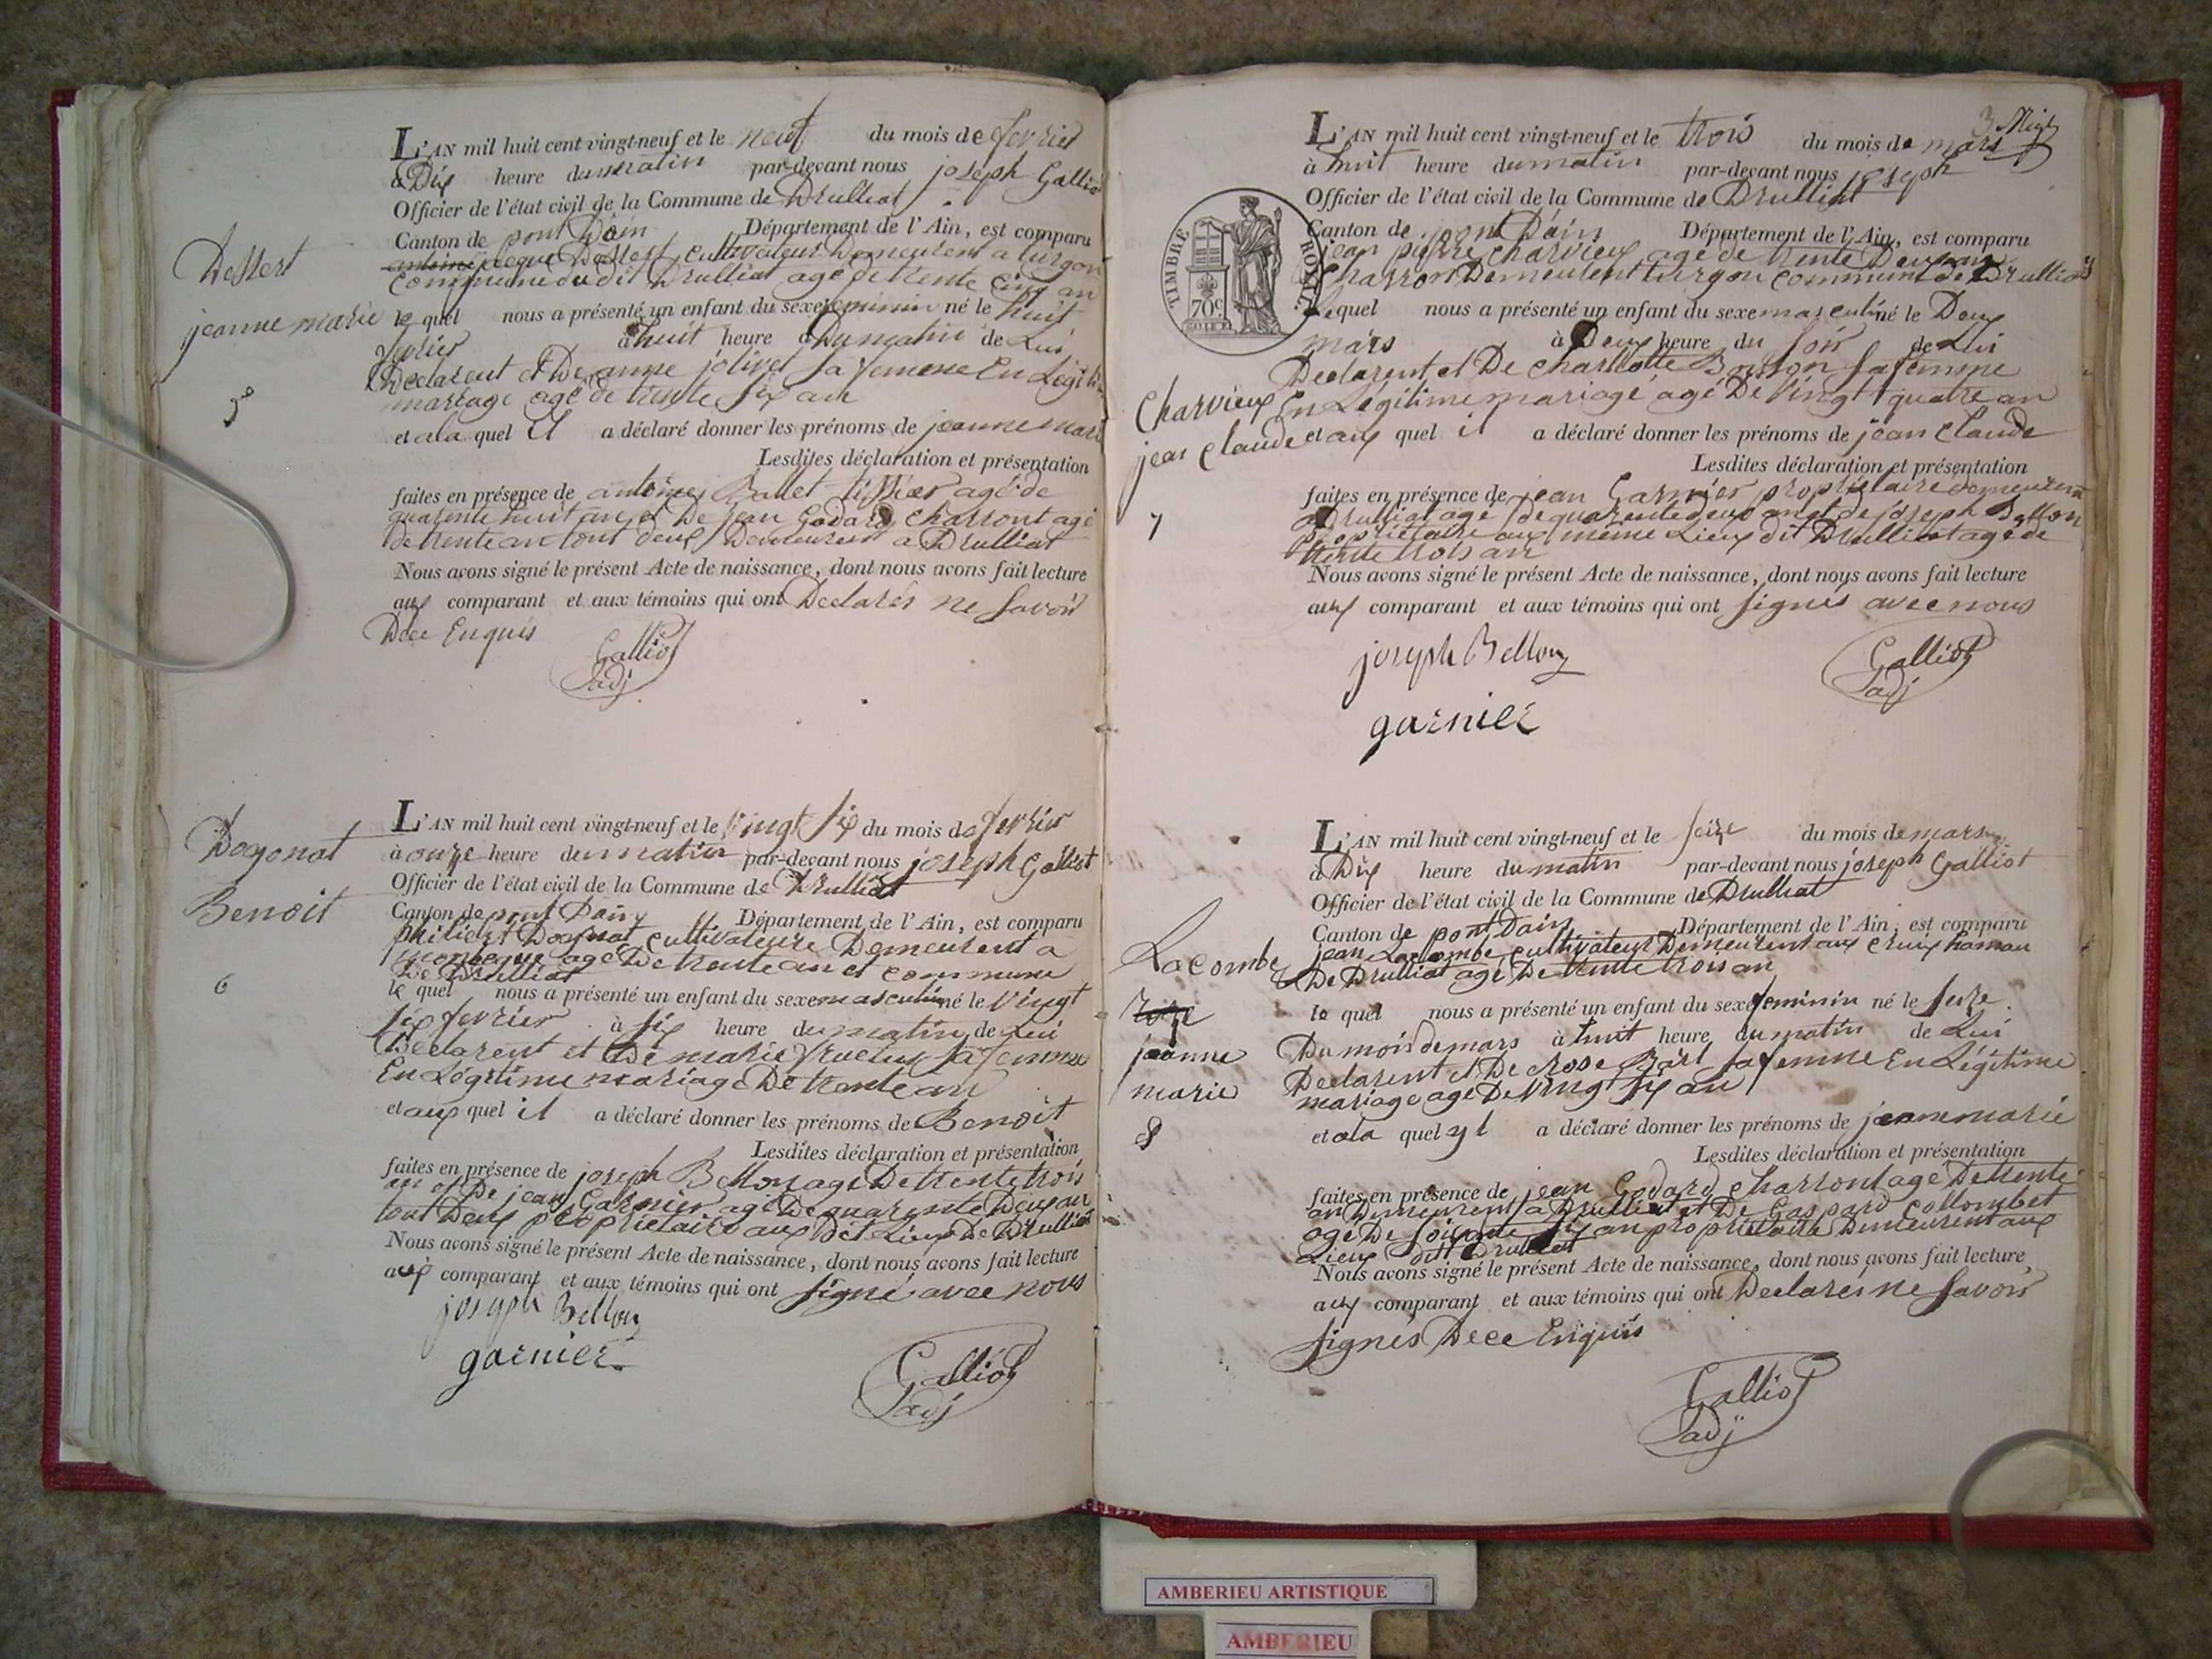 Dessert
jeanne marie
5
L'AN mil huit cent vingt-neuf et le neuf du mois de fevrier
à Dix heure du matin par-devant nous joseph Galliot
Officier de l'état civil de la Commune de Drulliat
Canton de pont Dain Département de l'Ain, est comparu
antoine jacque Dessert cultivateur Demeurent a turgon
commune du dit Drulliat agé de trente cinq an
le quel nous a présenté un enfant du sexe feminin né le huit
fevrier à huit heure Du matin de Lui
Declarent et De anne jolivet sa femme En Légiti
mariage agé de trente six an
et a la quel il a déclaré donner les prénoms de jeanne marie
Lesdites déclaration et présentation
faites en présence de antoine Ballet agé de
quarente huit an et De jean Godard charront agé
de trente an tout deux Demeurent a Drulliat
Nous avons signé le présent Acte de naissance, dont nous avons fait lecture
aux comparant et aux témoins qui ont Declarés ne Savoir
Dece Enquis
Galliot
adj
Dagonat
Benoit
6
L'AN mil huit cent vingt-neuf et le vingt six du mois de fevrier
à onze heure du matin par-devant nous joseph Galliot
Officier de l'état civil de la Commune de Drulliat
Canton de pont Dain Département de l'Ain, est comparu
philibert Dagonat cultivateure Demeurent a
agé De trente an et commune
De Drulliat
le quel nous a présenté un enfant du sexe masculin né le vingt
six fevrier à six heure du matin de Lui
Declarent et De marie sa femme
En Légitime mariage De trente an
et aux quel il a déclaré donner les prénoms de Benoit
Lesdites déclaration et présentation
faites en présence de joseph Bellon agé De trente trois
an et De jean Garnier agé De quarente Deux an
tout Deux propriétaire aux dit Lieux De Drulliat
Nous avons signé le présent Acte de naissance, dont nous avons fait lecture
aux comparant et aux témoins qui ont signé avec nous
joseph Bellon
garnier
Galliot
adj
3
L'AN mil huit cent vingt-neuf et le trois du mois de mars
à huit heure du matin par-devant nous joseph
Officier de l'état civil de la Commune de Drulliat
TIMBRE ROYAL
70c
Canton de pont Dain Département de l'Ain, est comparu
jean pierre charvieux agé de trente Deux an
charron Demeurent turgon commune de Drulliat
Lequel nous a présenté un enfant du sexe masculin né le Deux
mars à Deux heure du soir de Lui
Declarent et De charllotte sa femme
En Légitime mariagé agé De vingt quatre an
Charvieux
jean claude
7
et aux quel il a déclaré donner les prénoms de jean claude
Lesdites déclaration et présentation
faites en présence de jean Garnier propriétaire demeurent
a Drulliat agé de quarente deux an et de joseph Bellon
propriétaire aux même Lieux dit Drulliat agé de
trente trois an
Nous avons signé le présent Acte de naissance, dont nous avons fait lecture
aux comparant et aux témoins qui ont signés avec nous
joseph Bellon
garnier
Galliot
adj
Lacombe
jeanne
marie
8
L'AN mil huit cent vingt-neuf et le seize du mois de mars
à Dix heure du matin par-devant nous joseph Galliot
Officier de l'état civil de la Commune de Drulliat
Canton de pont Dain Département de l'Ain, est comparu
jean Lacombe cultivateur Demeurent aux creux hamau
De Drulliat agé De trente trois an
le quel nous a présenté un enfant du sexe feminin né le seize
Du mois de mars à huit heure du matin de Lui
Declarent et De rose sa femme En Légitime
mariage agé De vingt six an
et a la quel yl a déclaré donner les prénoms de jeanne marie
Lesdites déclaration et présentation
faites en présence de jean Godard charront agé De trente
an Demeurent a Drulliat et De Gaspard Collombet
agé De soixante six an propriétaire Demeurent aux
Lieux dit Drulliat
Nous avons signé le présent Acte de naissance, dont nous avons fait lecture
aux comparant et aux témoins qui ont Declarés ne Savoir
signés Dece Enquis
Galliot
adj
AMBERIEU ARTISTIQUE
AMBERIEU